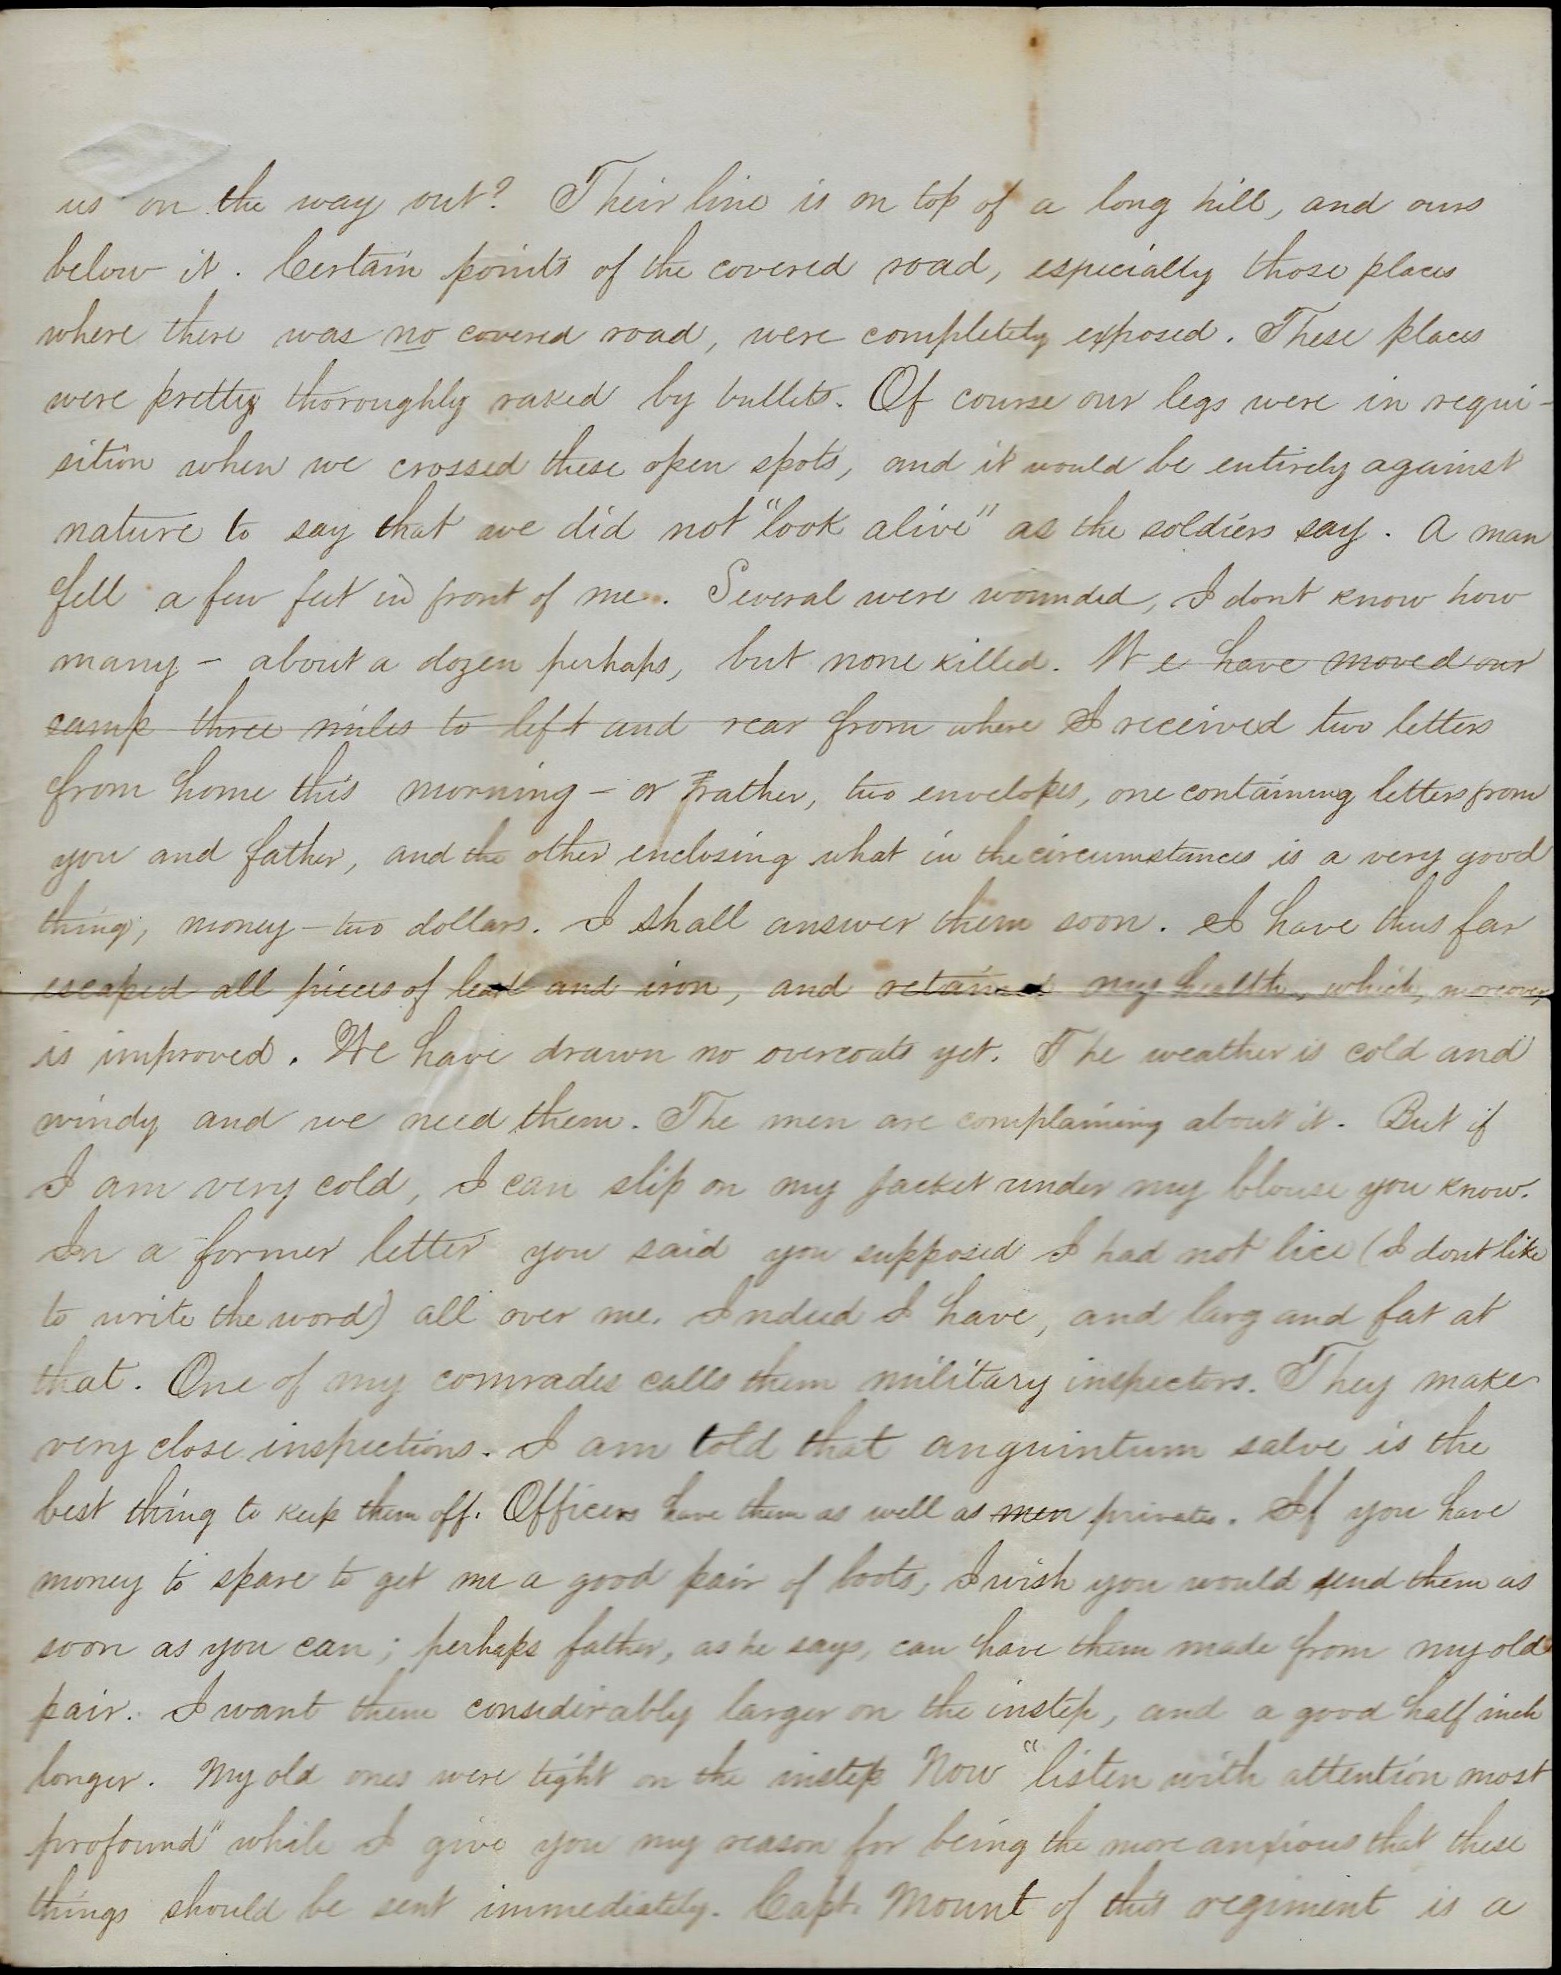 us on the way out? Their line is on top of a long hill, and ours
below it. Certain points of the covered road, especially those places
where there was no covered road, were completely exposed. These places
were pretty thoroughly raked by bullets. Of course our legs were in requi-
sition when we crossed these open spots, and it would be entirely against
nature to say that we did not "look alive" as the soldiers say. A man
fell a few feet in front of me. Several were wounded, I dont know how
many - about a dozen perhaps, but none killed. We have moved our
camp three miles to left and rear from where I received two letters
from home this morning - or rather, two envelopes, one containing letters from
you and father, and the other enclosing what in the circumstances is a very good
thing, money - two dollars. I shall answer them soon. I have thus far
escaped all pieces of lead and iron, and retained my health, which, moreover,
is improved. We have drawn no overcoats yet. The weather is cold and
windy and we need them. The men are complaining about it. But if
I am very cold, I can slip on my jacket under my blouse you know.
In a former letter you said you supposed I had not lice (I dont like
to write the word) all over me. Indeed I have, and larg and fat at
that. One of my comrades calls them military inspectors. They make
very close inspections. I am told that anguintum salve is the
best thing to keep them off. Officers have them as well as men privates. If you have
money to spare to get me a good pair of boots, I wish you would send them as
soon as you can; perhaps father, as he says, can have them made from my old
pair. I want them considerably larger on the instep, and a good half inch
longer. My old ones were tight on the instep Now "listen with attention most
profound" while I give you my reason for being the more anxious that these
things should be sent immediately. Capt. Mount of this regiment is a